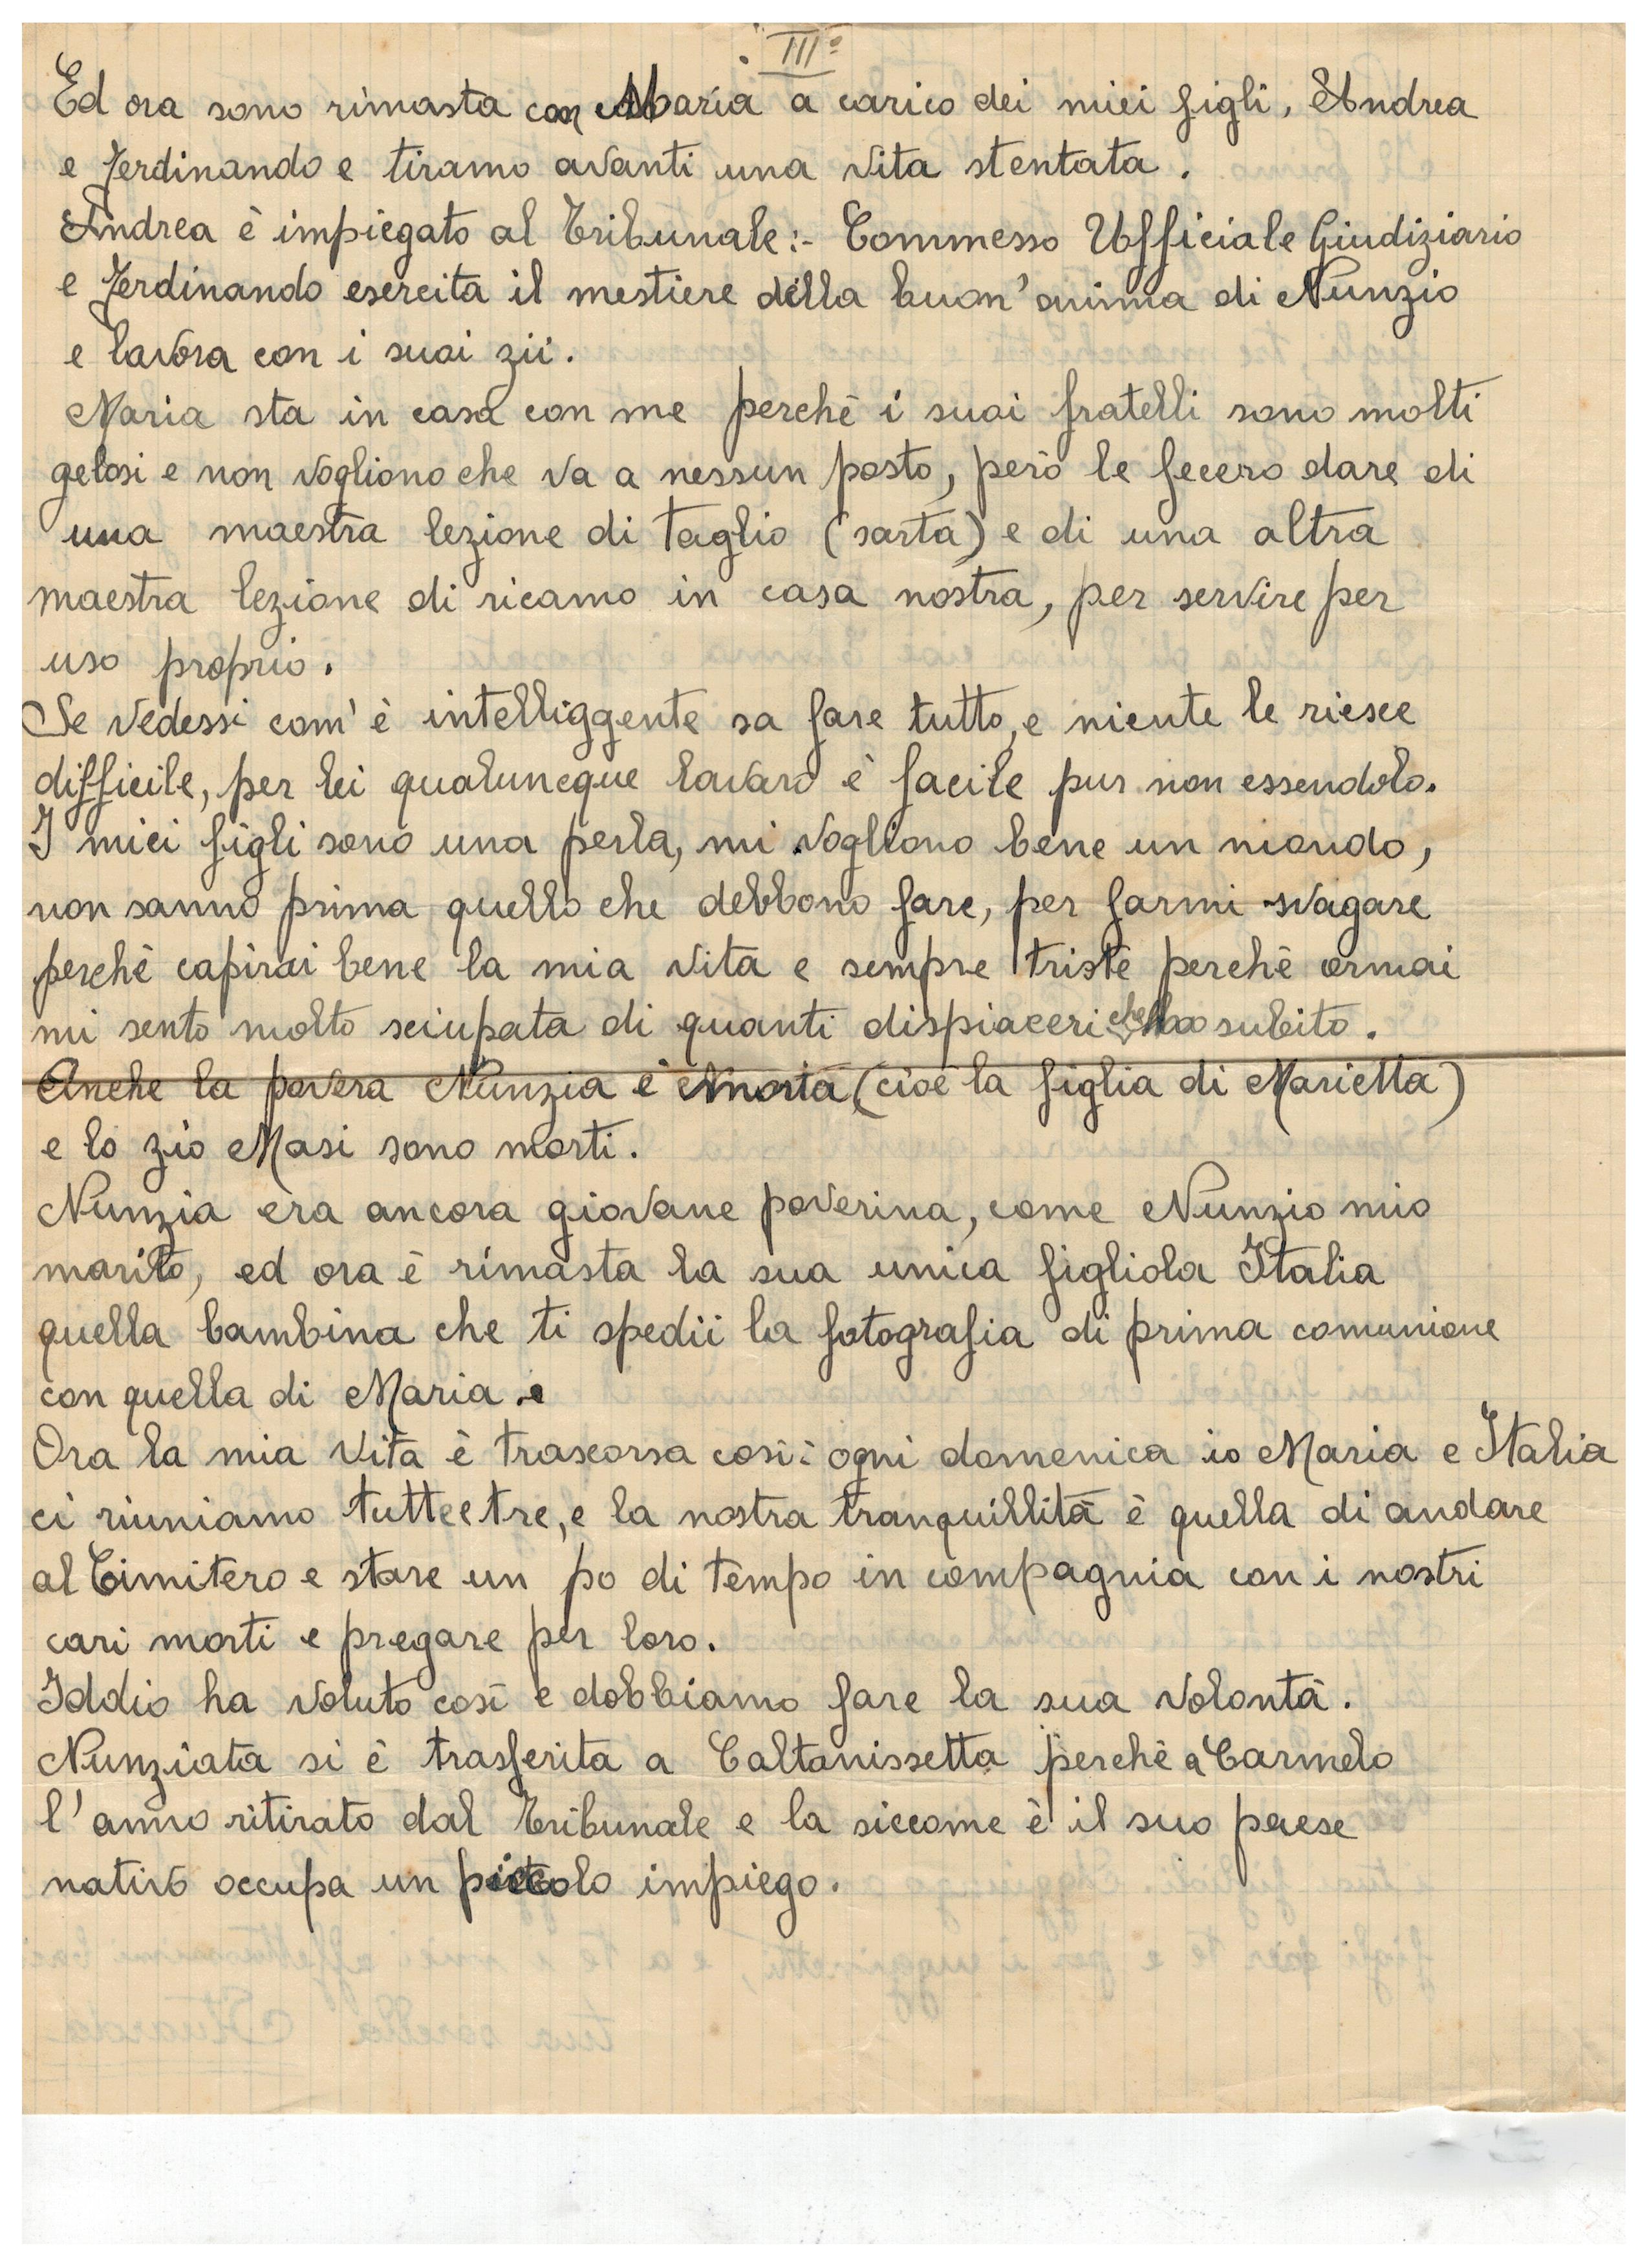 III°
Ed ora sono rimasta con Maria a carico dei miei figli, Andrea
e Ferdinando e tiramo avanti una vita stentata.
Andrea è impiegato al Tribunale:- Commesso Ufficiale Giudiziario
e Ferdinando esercita il mestiere della buon'anima di Nunzio
e lavora con i suoi zii.
Maria sta in casa con me perchè i suoi fratelli sono molti
gelosi e non vogliono che va a nessun posto, però le fecero dare di
una maestra lezione di taglio (sarta) e di una altra
maestra lezione di ricamo in casa nostra, per servire per
uso proprio.
Se vedessi com'è intelliggente sa fare tutto, e niente le riesce
difficile, per lei qualuncque lavoro è facile pur non essendolo.
I miei figli sono una perla, mi vogliono bene un mondo,
non sanno prima quello che debbono fare, per farmi svagare
perchè capirai bene la mia vita e sempre triste perchè ormai
mi sento molto sciupata di quanti dispiaceri che ho subito.
Anche la povera Nunzia è morta (cioè la figlia di Marietta)
e lo zio Masi sono morti.
Nunzia era ancora giovane poverina, come Nunzio mio
marito, ed ora è rimasta la sua unica figliola Italia
quella bambina che ti spedii la fotografia di prima comunione
con quella di Maria.
Ora la mia vita è trascorsa così: ogni domenica io Maria e Italia
ci riuniamo tutte e tre, e la nostra tranquillità è quella di andare
al Cimitero e stare un po di tempo in compagnia con i nostri
cari morti e pregare per loro.
Iddio ha voluto così e dobbiamo fare la sua volontà.
Nunziata si è trasferita a Caltanissetta perchè a Carmelo
l'anno ritirato dal Tribunale e la siccome è il suo paese
nativo occupa un piccolo impiego.